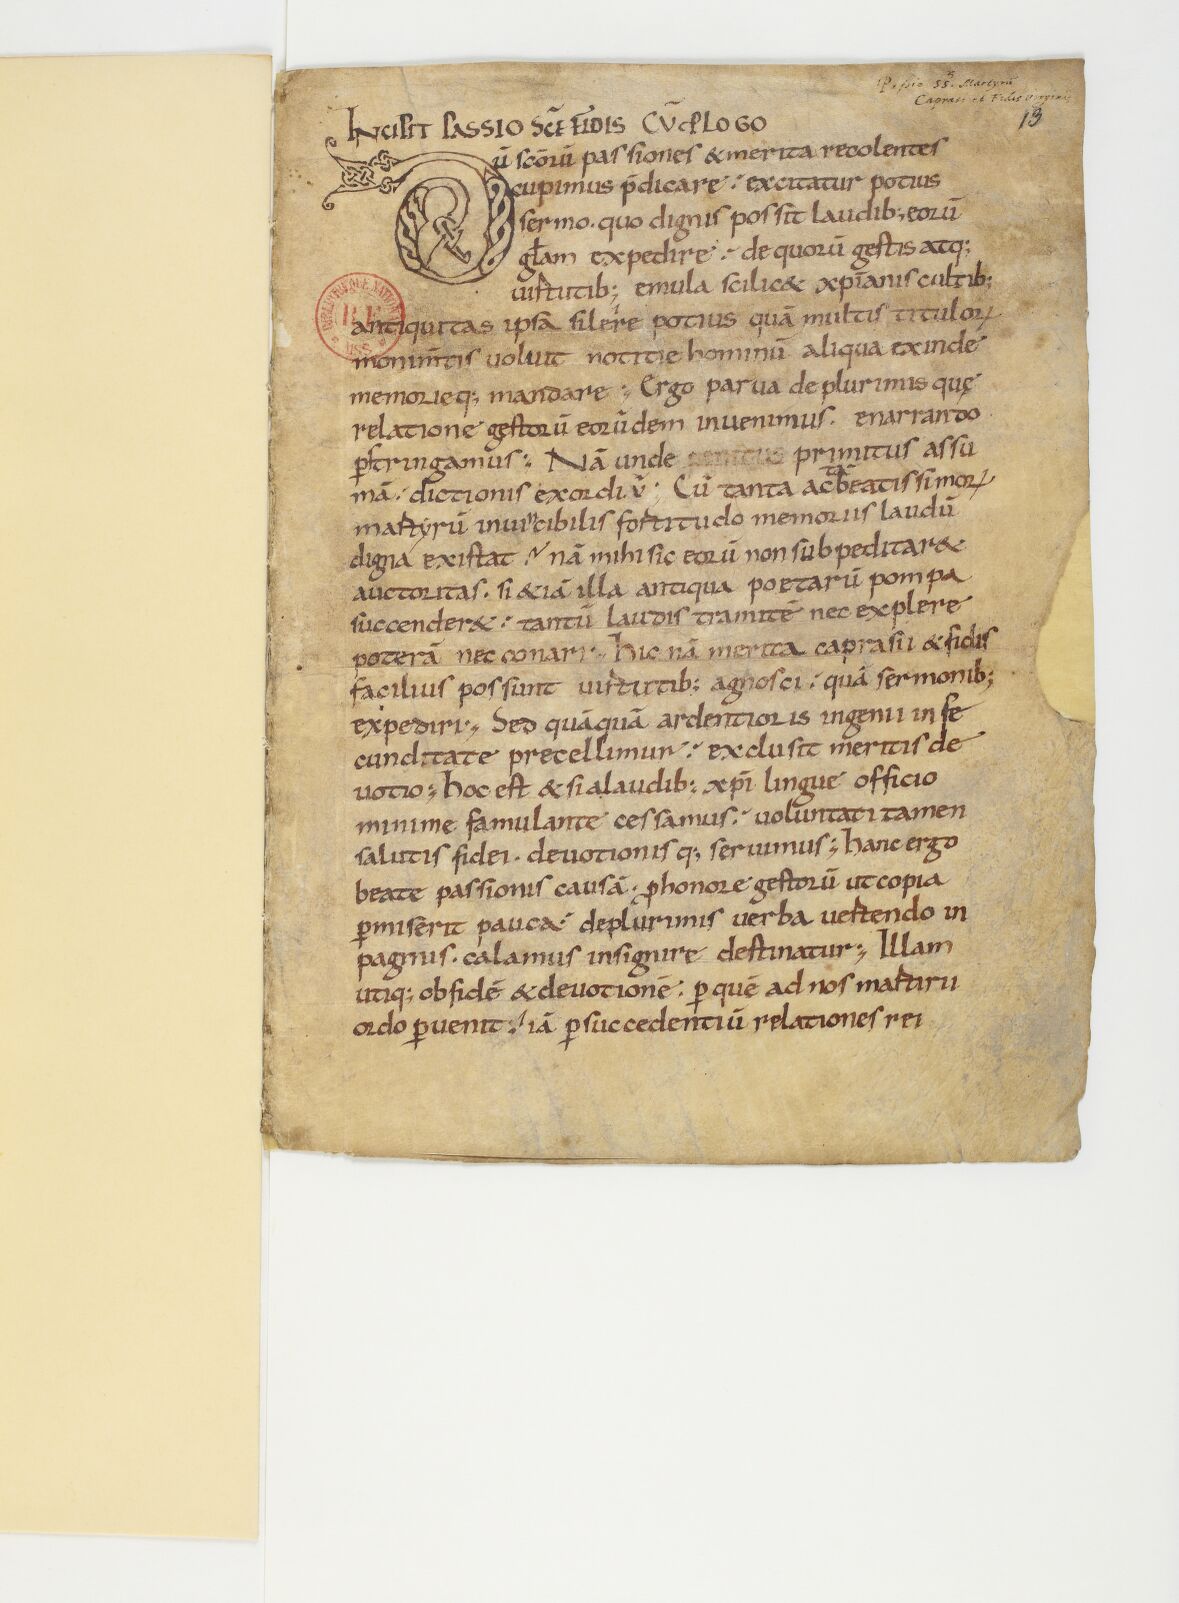 Passio SS. Martyrũ
Caprasi et Fidis Virginis
13
INCIPIT PASSIO SCẼ FIDIS CŨ PLOGO
Qũ scõrũ passiones & merita recolentes
cupimus p̄dicare; excitatur potius
sermo. quo dignis possit laudib; eorũ
glãm expedire; de quorũ gestis atq;
uirtutib; emula scilic& xp̃ianis cultib;
antiquitas ipsã silere potius quã multis tituloꝝ
monim̃tis voluit notitie hominũ aliqua exinde
memorieq; mandare; Ergo parva de plurimis quę
relatione gestorũ eorũdem invenimus. enarrando
p̃stringamus; Nã unde primitus assu
mã. dictionis exordiũ; Cũ tanta ac tã beatissimoꝝ
martyrũ invincibilis fortitudo memoriis laudũ
digna existat; nã mihi sic eorũ non subpeditar&
auctoritas. si &iã illa antiqua poetarũ pompa
succender&; tantũ laudis tramitẽ nec explere
poterã nec conari; hic nã merita caprasii & fidis
facilius possunt uirtutib; agnosci; quã sermonib;
expediri; Sed quãquã ardentioris ingenii in fe
cunditate precellimur; exclusit meritis de
votio; hoc est & si a laudib; xp̃i lingue officio
minime famulante cessamus; voluntati tamen
salutis fidei. devotionisq; servimus; hanc ergo
beate passionis causã; ꝓ honore gestorũ ut copia
ꝑmiserit pauca; de plurimis verba vertendo in
paginis. calamus insignire destinatur; Illam
utiq; ob fidẽ & devotionẽ; ꝑ quẽ ad nos martiru
ordo ꝑvenit; iã ꝑ succedentiũ relationes rei